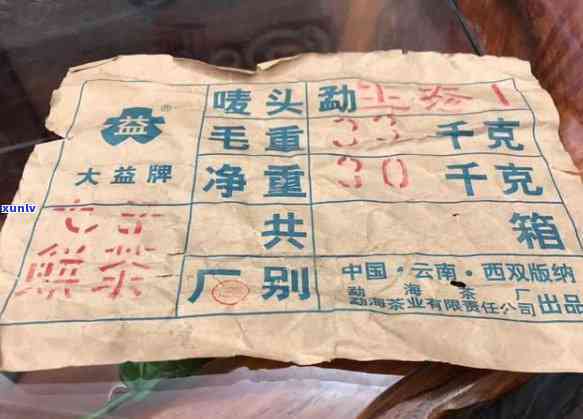 唛头 勐
益 ®
毛重 33 千克
大益牌
净重 30 千克
七子
饼茶
共 箱
厂别 中国·云南·西双版纳
勐海茶厂
勐海茶业有限责任公司 出品
xunlv